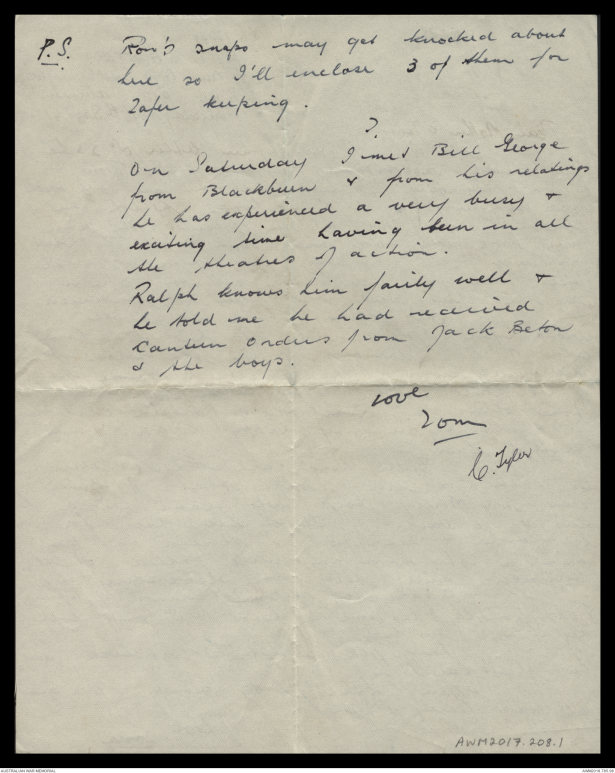 P.S. Ron's snaps may get knocked about
here so I'll enclose 3 of them for
safer keeping.
?
On Saturday I met Bill George
from Blackburn & from his relatings
he has experienced a very busy &
exciting time having been in all
the theatres of action.
Ralph knows him fairly well &
he told me he had received
canteen orders from Jack Beton
& the boys.
Love
Tom
C. Tyler
AWM2017.208.1
AUSTRALIAN WAR MEMORIAL